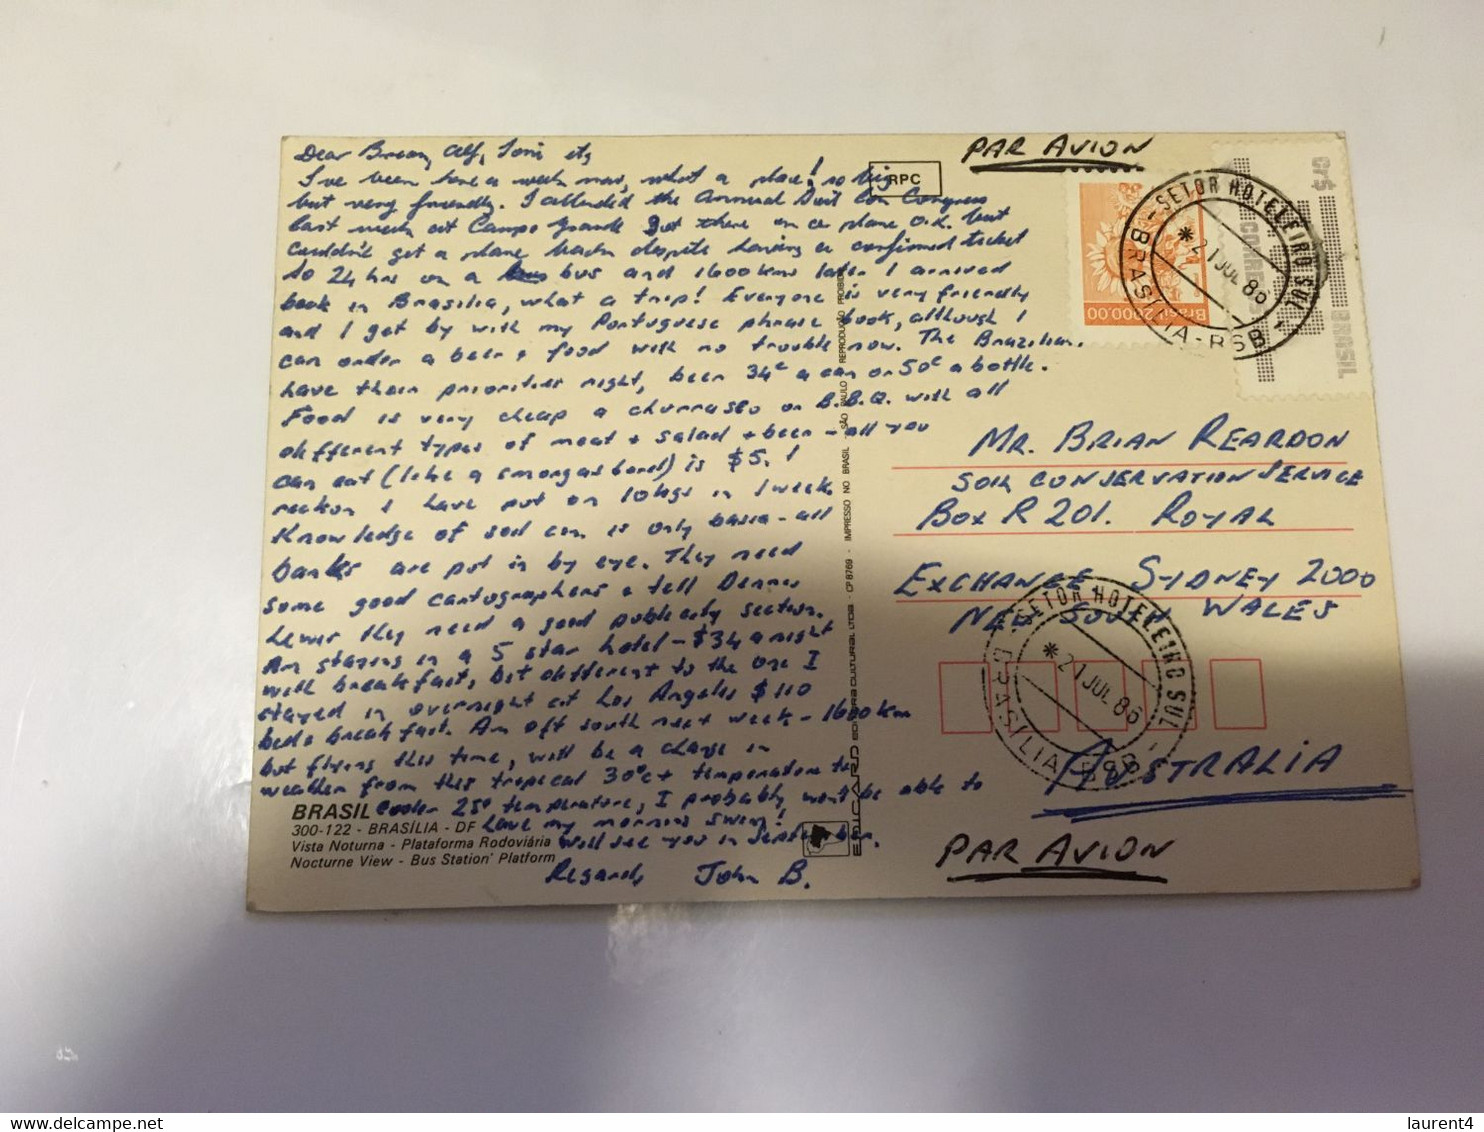 Dear Brian, Alf, Toni etc
I've been here a week now, what a place! so big
but very friendly. I attended the Annual Soil Con Congress
last week at Campo Grande Got there on a plane O.K. but
couldn't get a plane back despite having a confirmed ticket
So 24 hrs on a bus and 1600 kms later I arrived
back in Brasilia, what a trip! Everyone is very friendly
and I get by with my Portuguese phrase book, although I
can order a beer & food with no trouble now. The Brazilians
have their priorities right, beer 34¢ a can or 50¢ a bottle.
Food is very cheap a churrasco or B.B.Q. with all
different types of meat + salad + beer - all you
can eat (like a smorgasbord) is $5. I
reckon I have put on 10kgs in 1 week.
Knowledge of soil con is only basic - all
banks are put in by eye. They need
some good cartographers & tell Dennis
they need a good publicity section.
Am staying in a 5 star hotel - $34 a night
with breakfast, bit different to the one I
stayed in overnight at Los Angeles $110
bed & breakfast. Am off south next week - 1600 km
but flying this time, will be a change in
weather from this tropical 30°c+ temperature to
cooler 25° temperature, I probably won't be able to
have my morning swim!
Will see you in September.
Regards John B.
BRASIL
300-122 - BRASÍLIA - DF
Vista Noturna - Plataforma Rodoviária
Nocturne View - Bus Station Platform
EDICARD EDITORA CULTURAL LTDA - CP 8769 - IMPRESSO NO BRASIL SÃO PAULO REPRODUÇÃO PROIBIDA
RPC
PAR AVION
Brasil 2000.00
Cr$
CORREIOS
BRASIL
SETOR HOTELEIRO SUL
* 21 JUL 86
BRASÍLIA - BSB
MR. BRIAN REARDON
SOIL CONSERVATION SERVICE
BOX R 201. ROYAL
EXCHANGE SYDNEY 2000
NEW SOUTH WALES
SETOR HOTELEIRO SUL
* 21 JUL 86
BRASÍLIA - BSB
AUSTRALIA
PAR AVION
laurent4